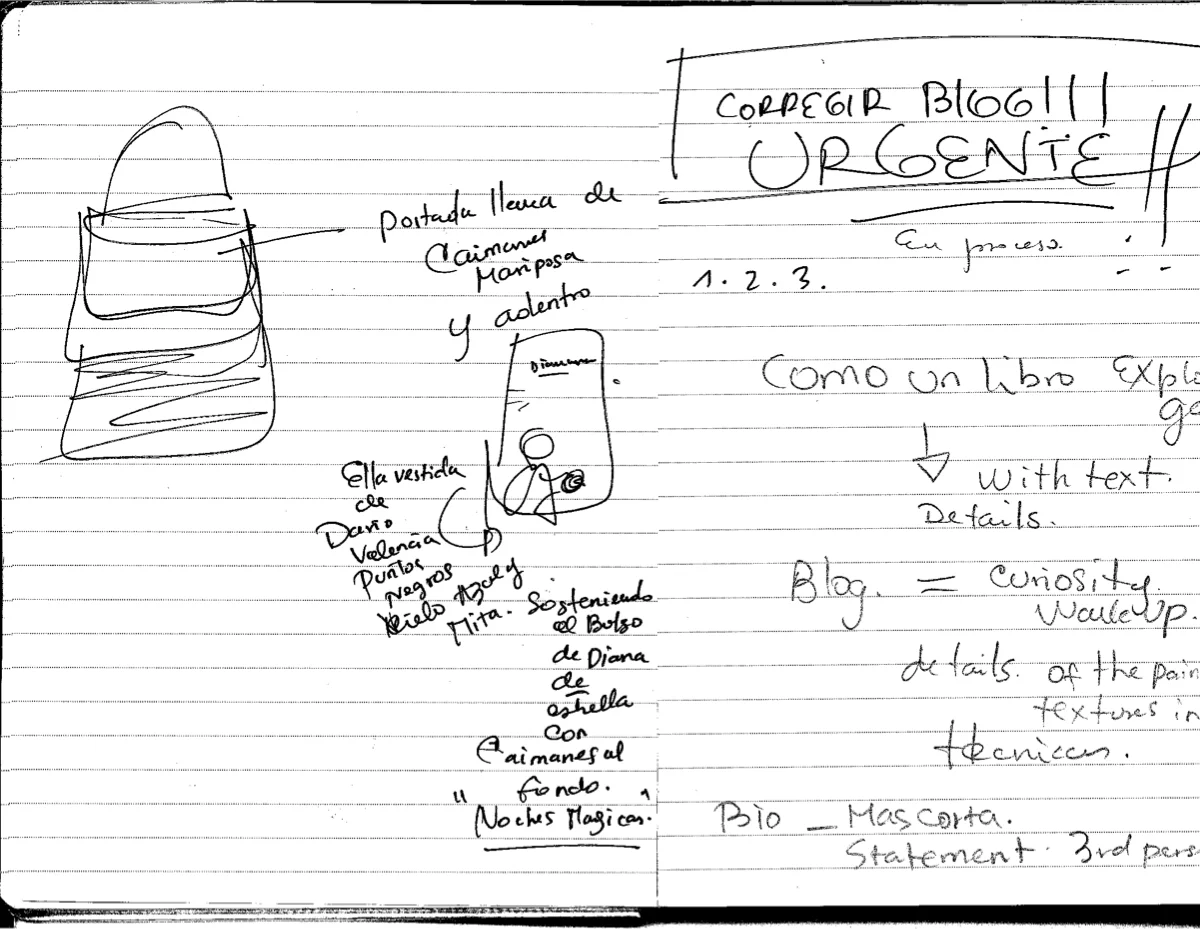 Portada llena de
Caimanes
Mariposa
y adentro
Ella vestida
de
Dario
Valencia
Puntos
Negros
Cielo Azul y
Mita. Sosteniendo
el Bolso
de Diana
de
estrella
con
Caimanes al
fondo.
"Noches Magicas."
CORREGIR BlOG!!!
URGENTE !!
En proceso.
1. 2. 3.
Como un libro Explo
ge
With text.
Details.
Blog. = curiosity.
Wake up.
details. of the pain
textures in
técnicas.
Bio _ Mas corta.
Statement. 3rd pers